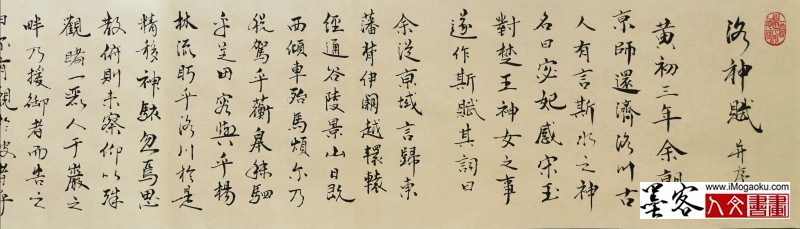 洛神賦 并序
黃初三年余朝
京師還濟洛川古
人有言斯水之神
名曰宓妃感宋玉
對楚王神女之事
遂作斯賦其詞曰
余從京域言歸東
藩背伊闕越轘轅
經通谷陵景山日既
西傾車殆馬煩尔乃
税駕乎蘅皋秣駟
乎芝田容與乎楊
林流眄乎洛川於是
精移神駭忽焉思
散俯則未察仰以殊
觀睹一麗人于巖之
畔乃援御者而告之
曰尔有覿於彼者乎
墨客
www.iMogaoku.com
人文書畫